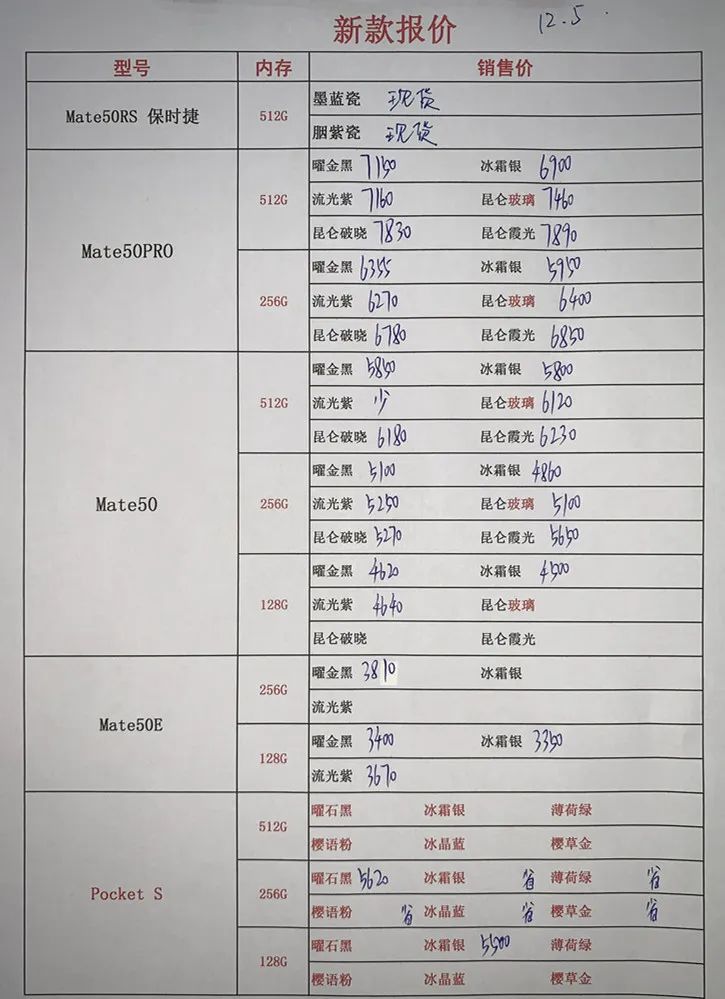 新款报价 12.5
型号 内存 销售价
Mate50RS 保时捷 512G 墨蓝瓷 现货
胭紫瓷 现货
Mate50PRO 512G 曜金黑 7150 冰霜银 6900
流光紫 7160 昆仑玻璃 7460
昆仑破晓 7830 昆仑霞光 7890
256G 曜金黑 6355 冰霜银 5950
流光紫 6270 昆仑玻璃 6400
昆仑破晓 6780 昆仑霞光 6850
Mate50 512G 曜金黑 5850 冰霜银 5800
流光紫 少 昆仑玻璃 6120
昆仑破晓 6180 昆仑霞光 6230
256G 曜金黑 5100 冰霜银 4860
流光紫 5250 昆仑玻璃 5100
昆仑破晓 5270 昆仑霞光 5650
128G 曜金黑 4620 冰霜银 4500
流光紫 4640 昆仑玻璃
昆仑破晓 昆仑霞光
Mate50E 256G 曜金黑 3810 冰霜银
流光紫
128G 曜金黑 3400 冰霜银 3350
流光紫 3670
Pocket S 512G 曜石黑 冰霜银 薄荷绿
樱语粉 冰晶蓝 樱草金
256G 曜石黑 5620 冰霜银 省 薄荷绿 省
樱语粉 省 冰晶蓝 省 樱草金 省
128G 曜石黑 冰霜银 5500 薄荷绿
樱语粉 冰晶蓝 樱草金